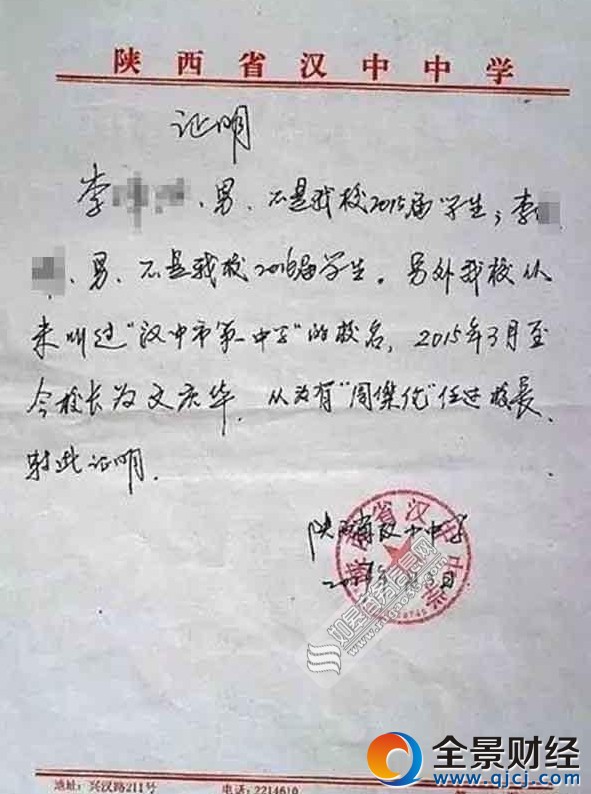 陕西省汉中中学
证明
李 、男、不是我校2015届学生；李
、男、不是我校2016届学生。另外我校从
未叫过“汉中市第一中学”的校名，2015年3月至
今校长为文庆华，从没有“周傑伦”任过校长、
特此证明.
陕西省汉中中学
陕西省汉中中学
地址：兴汉路211号 电话：2214610
全景财经
www.qjcj.com